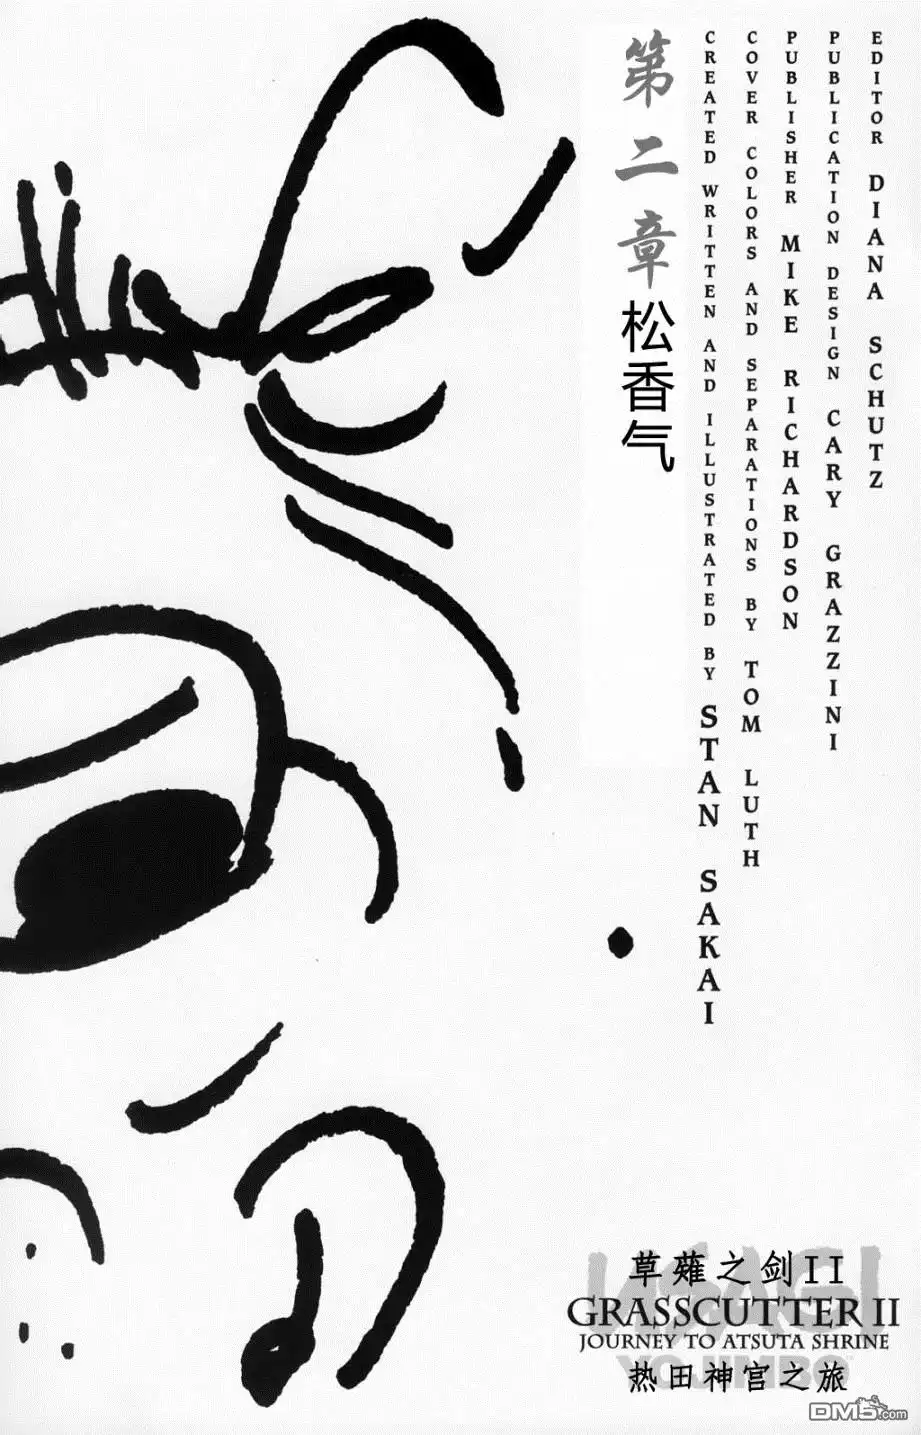 EDITOR DIANA SCHUTZ
PUBLICATION DESIGN CARY GRAZZINI
PUBLISHER MIKE RICHARDSON
COVER COLORS AND SEPARATIONS BY TOM LUTH
CREATED WRITTEN AND ILLUSTRATED BY STAN SAKAI
第二章松香气
USAGI
草薙之剑II
GRASSCUTTER II
JOURNEY TO ATSUTA SHRINE
YOJIMBO
热田神宫之旅
DM5.com